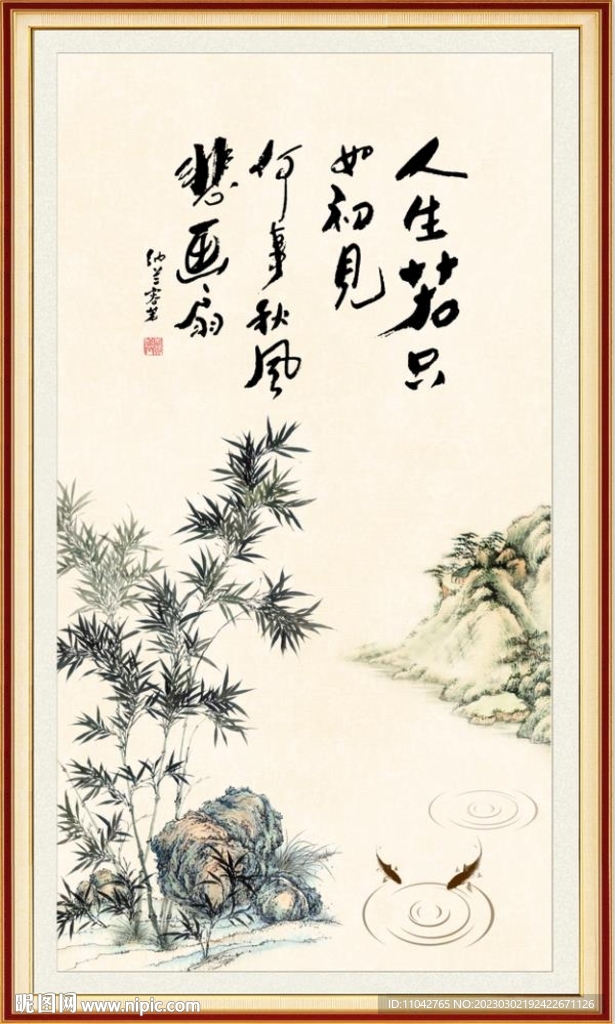 人生若只
如初見
何事秋風
悲画扇
纳兰容若
昵图网 www.nipic.com
ID:11042765 NO:20230302192422671126